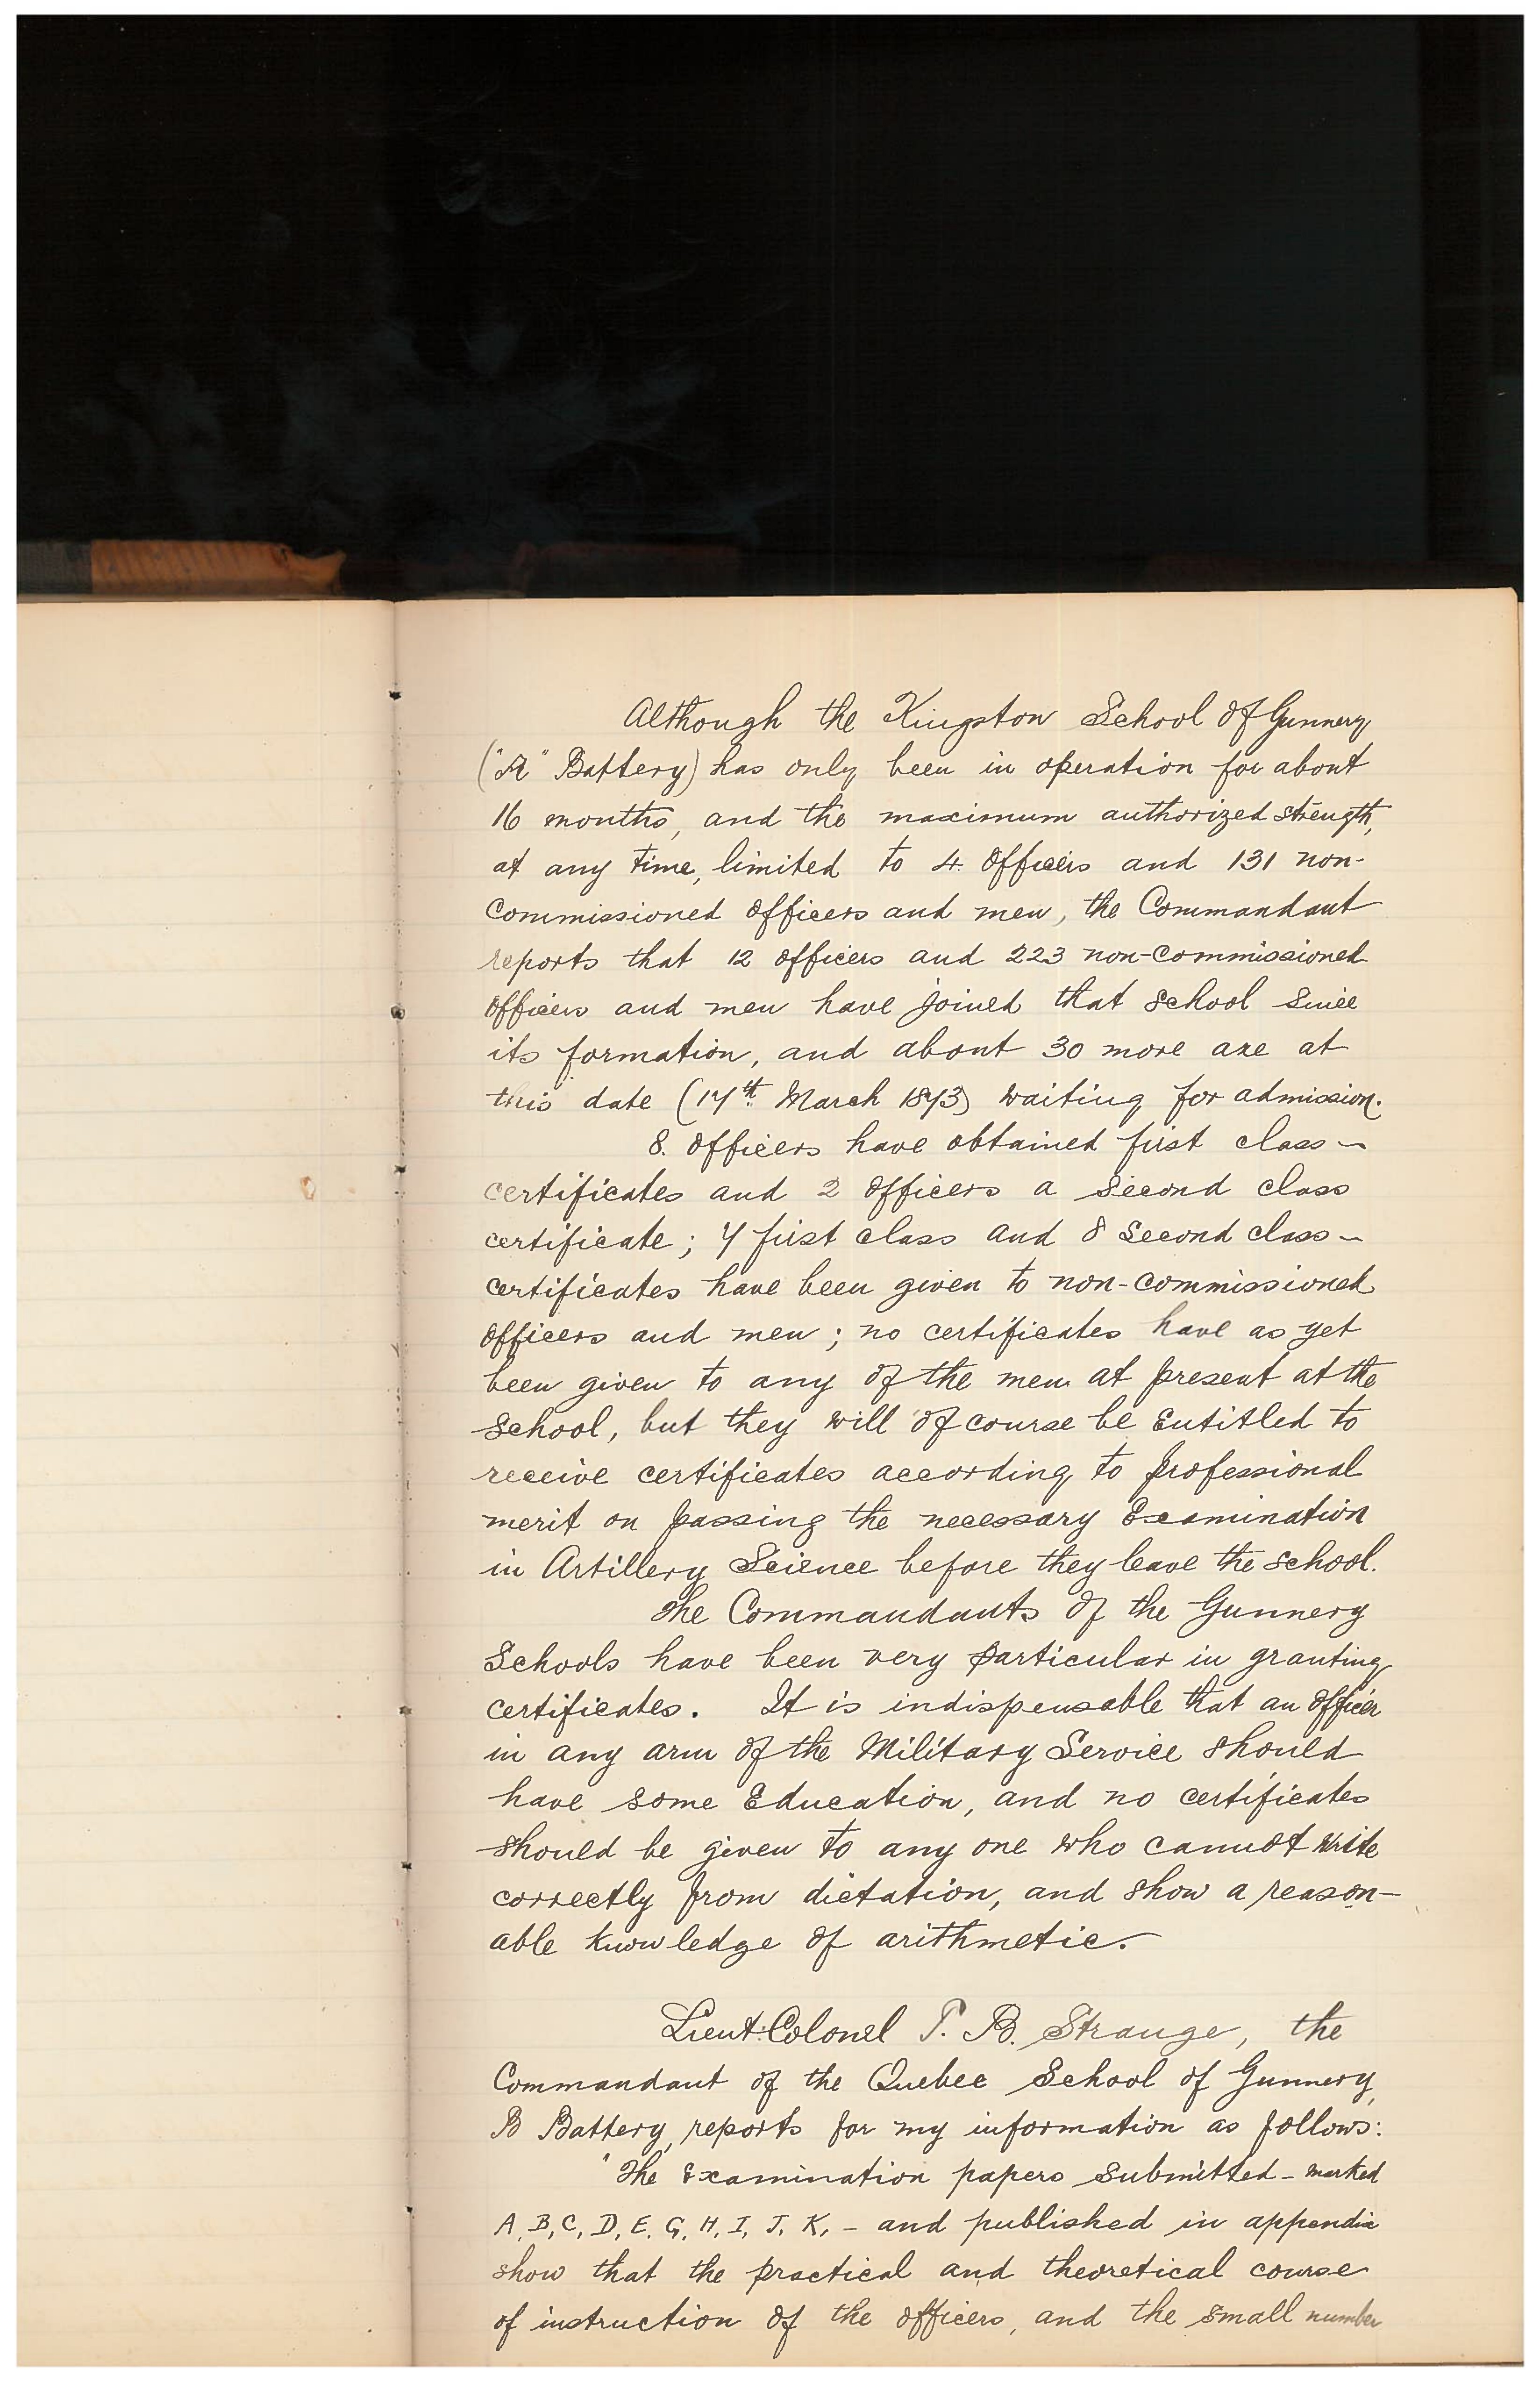 Although the Kingston School of Gunnery
("A" Battery) has only been in operation for about
16 months, and the maximum authorized strength,
at any time, limited to 4 Officers and 131 non-
Commissioned Officers and men, the Commandant
reports that 12 officers and 223 non-Commissioned
Officers and men have joined that School since
its formation, and about 30 more are at
this date (17th March 1873) waiting for admission.
8. Officers have obtained first class
certificates and 2 Officers a Second class
certificate; 7 first class and 8 Second class
certificates have been given to non-commissioned
Officers and men; no certificates have as yet
been given to any of the men at present at the
School, but they will of course be Entitled to
receive certificates according to professional
merit on passing the necessary Examination
in Artillery Science before they leave the School.
The Commandants of the Gunnery
Schools have been very particular in granting
certificates. It is indispensable that an Officer
in any arm of the Military Service should
have some Education, and no certificates
should be given to any one who cannot write
correctly from dictation, and show a reason-
able knowledge of arithmetic.
Lieut: Colonel T. B. Strange, the
Commandant of the Quebec School of Gunnery,
B Battery, reports for my information as follows:
"The Examination papers submitted - marked
A, B, C, D, E, G, H, I, J, K, - and published in appendix
show that the practical and theoretical course
of instruction of the officers, and the small number